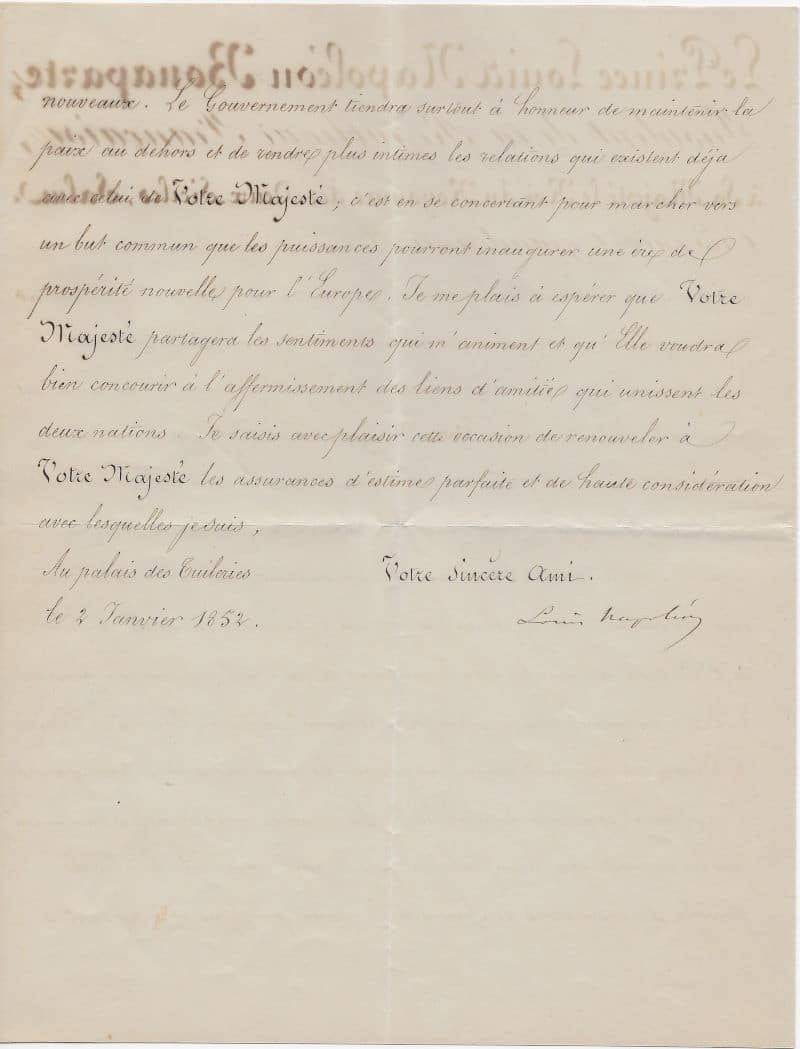 nouveaux. Le Gouvernement tiendra surtout à honneur de maintenir la
paix au dehors et de rendre plus intimes les relations qui existent déja
avec celui de Votre Majesté; c'est en se concertant pour marcher vers
un but commun que les puissances pourront inaugurer une ère de
prospérité nouvelle pour l'Europe. Je me plais à espérer que Votre
Majesté partagera les sentiments qui m'animent et qu'Elle voudra
bien concourir à l'affermissement des liens d'amitié qui unissent les
deux nations. Je saisis avec plaisir cette occasion de renouveler à
Votre Majesté les assurances d'estime parfaite et de haute considération
avec lesquelles je suis,
Au palais des Tuileries
le 2 Janvier 1852.
Votre Sincère Ami.
Louis Napoléon
Le Prince Louis Napoléon Bonaparte,